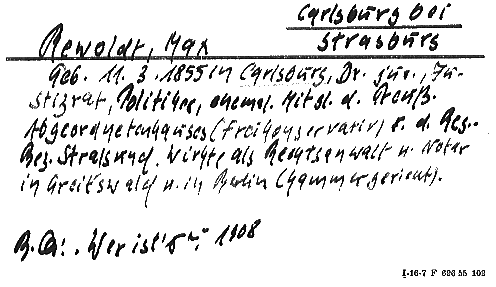 Carlsburg bei
Strasburg
Rewoldt, Max
Geb. 11. 3. 1855 in Carlsburg, Dr. jur., Ju-
stizrat, Politiker, ehemal. Mitgl. d. Preuß.
Abgeordnetenhauses (Freikonservativ) f. d. Reg.-
Bez. Stralsund. Wirkte als Rechtsanwalt u. Notar
in Greifswald u. in Berlin (Kammergericht).
B. Qu.: "Wer ist's", 1908
I-16-7 F 626 55 102